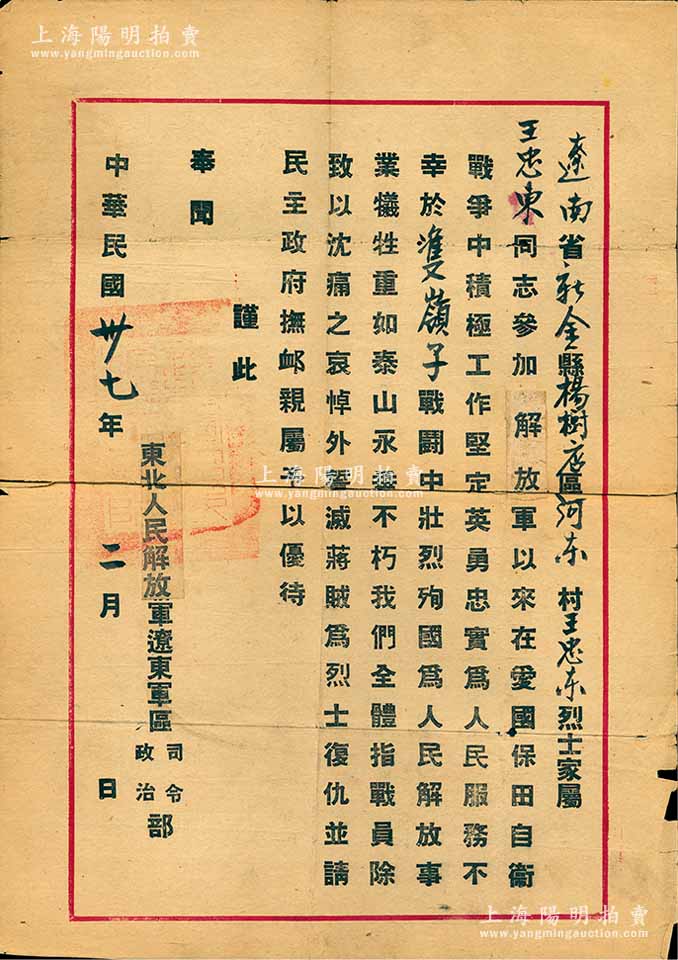 上海陽明拍賣
www.yangmingauction.com
遼南省新金縣楊樹店區河东村王忠东烈士家屬
王忠東同志參加解放軍以來在愛國保田自衞
戰爭中積極工作堅定英勇忠實爲人民服務不
幸於雙嶺子戰鬪中壯烈殉國爲人民解放事
業犠牲重如泰山永垂不朽我們全體指戰員除
致以沈痛之哀悼外誓滅蔣賊爲烈士復仇並請
民主政府撫卹親屬予以優待
謹此
奉聞
東北人民解放軍遼東軍區司令政治部
中華民國卅七年二月日
上海陽明拍賣
www.yangmingauction.com
上海陽明拍賣
www.yangmingauction.com